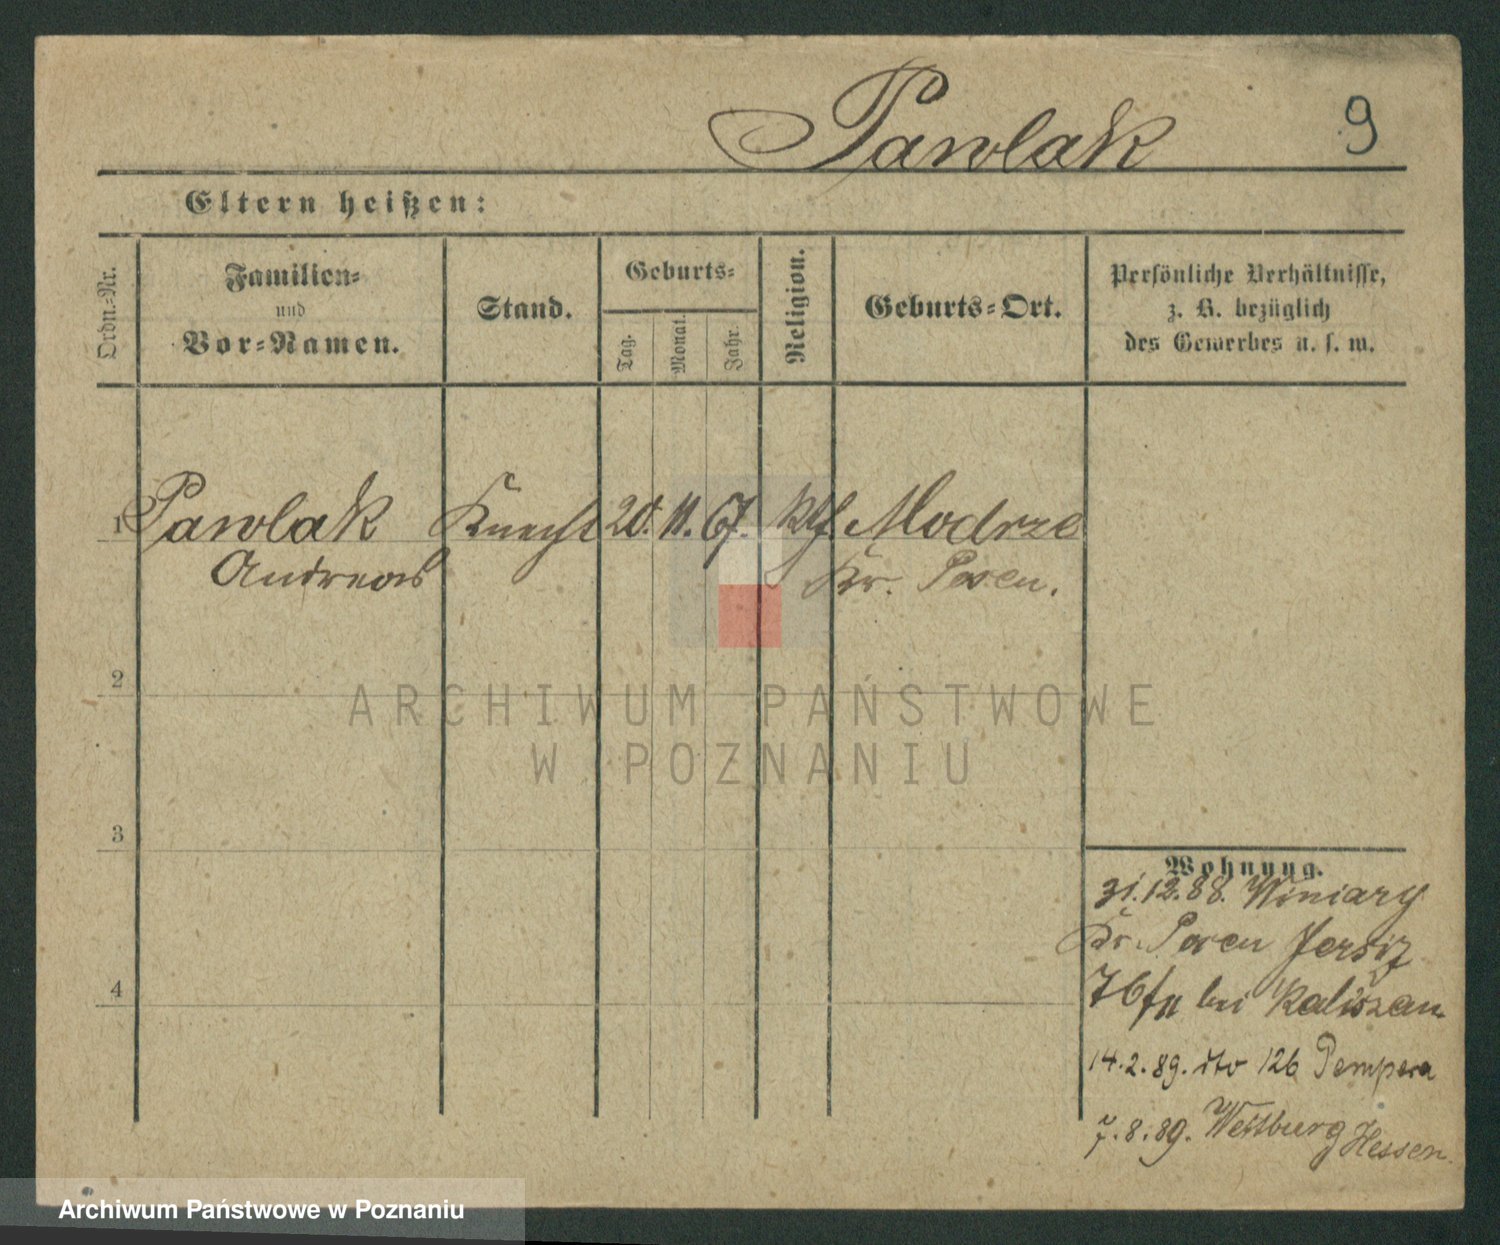 Pawlak
9
Eltern heißen:
Ordn.-Nr.
Familien-
und
Vor-Namen.
Stand.
Geburts-
Tag.
Monat.
Jahr.
Religion.
Geburts-Ort.
Persönliche Verhältnisse,
z. B. bezüglich
des Gewerbes u. s. w.
1 Pawlak Knecht 20. 11. 67. Modrze
Andreas Kr. Posen.
2
3
4
ARCHIWUM PAŃSTWOWE
W POZNANIU
Wohnung.
31.12.88. Winiary
Kr. Posen Jersiz
bei Kaliszan
14.2.89. dto 126 Pempera
7.8.89. Hessen
Archiwum Państwowe w Poznaniu